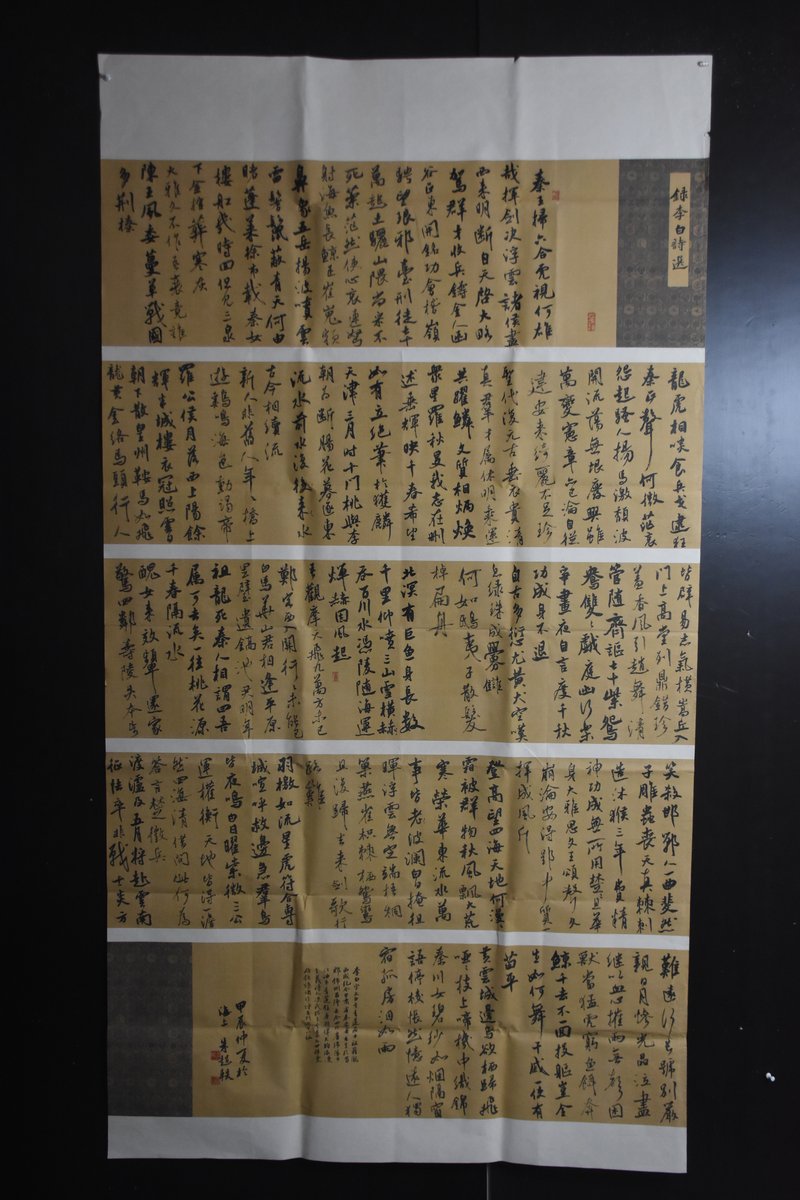 錄李白詩選
秦王掃六合虎視何雄
哉揮劍決浮雲諸侯盡
西來明斷自天啓大略
駕群才收兵鑄金人函
谷正東開銘功會稽嶺
騁望琅邪臺刑徒七十
萬起土驪山隈尚采不
死藥茫然使心哀連弩
射海魚長鯨正崔嵬額
鼻象五岳揚波噴雲
雷鬐鬣蔽青天何由
睹蓬萊徐巿載秦女
樓船幾時回但見三泉
下金棺葬寒灰
大雅久不作吾衰竟誰
陳王風委蔓草戰國
多荊榛
龍虎相啖食兵戈逮狂
秦正聲何微茫哀
怨起騷人揚馬激頹波
開流蕩無垠廢興雖
萬變憲章亦已淪自從
建安來綺麗不足珍
聖代復元古垂衣貴清
真羣才屬休明乘運
共躍鱗文質相炳煥
衆星羅秋旻我志在刪
述垂輝映千春希聖
如有立絕筆於獲麟
天津三月時千門桃與李
朝爲斷腸花暮逐東
流水前水復後來水
古今相續流
新人非舊人年年橋上
遊雞鳴海色動謁帝
羅公侯月落西上陽餘
輝半城樓衣冠照雲日
朝下散皇州鞍馬如飛
龍黃金絡馬頭行人
皆辟易志氣橫嵩丘入
門上高堂列鼎錯珍
羞香風引趙舞清
管隨齊謳七十紫鴛
鴦雙雙戲庭幽行樂
爭晝夜自言度千秋
功成身不退
自古多愆尤黃犬空嘆
息綠珠成釁讎
何如鴟夷子散髮
棹扁舟
北溟有巨魚身長數
千里仰噴三山雪橫
吞百川水憑陵隨海運
燀赫因風起
吾觀摩天飛九萬方未已
鄭客西入關行行未能已
白馬華山君相逢平原
里璧遺鎬池君明年
祖龍死秦人相謂曰吾
屬可去矣一往桃花源
千春隔流水
醜女來效顰還家
驚四鄰壽陵失本步
笑殺邯鄲人一曲斐然
子雕蟲喪天真棘刺
造沐猴三年費精
神功成無所用楚楚且華
身大雅思文王頌聲久
崩淪安得郢中質一
揮成風斤
登高望四海天地何漫漫
霜被群物秋風飄大荒
寒榮華東流水萬
事皆波瀾白日掩徂
暉浮雲無定端梧桐
巢燕雀枳棘棲鴛鸞
且復歸去來劍歌行
路難
羽檄如流星虎符合專
城喧呼救邊急羣鳥
皆夜鳴白日曜紫微三公
運權衡天地皆得一澹
然四海清借問此何爲
答言楚徵兵
渡瀘及五月將赴雲南
征怯卒非戰士炎方
難遠行長號別嚴
親日月慘光晶泣盡
繼以血心摧兩無聲困
獸當猛虎窮魚餌奔
鯨千去不一回投軀豈全
生如何舞干戚一使有
苗平
黃雲城邊烏欲棲歸飛
啞啞枝上啼機中織錦
秦川女碧紗如烟隔窗
語停梭悵然憶遠人獨
宿孤房淚如雨
甲辰仲夏於
海上朱超